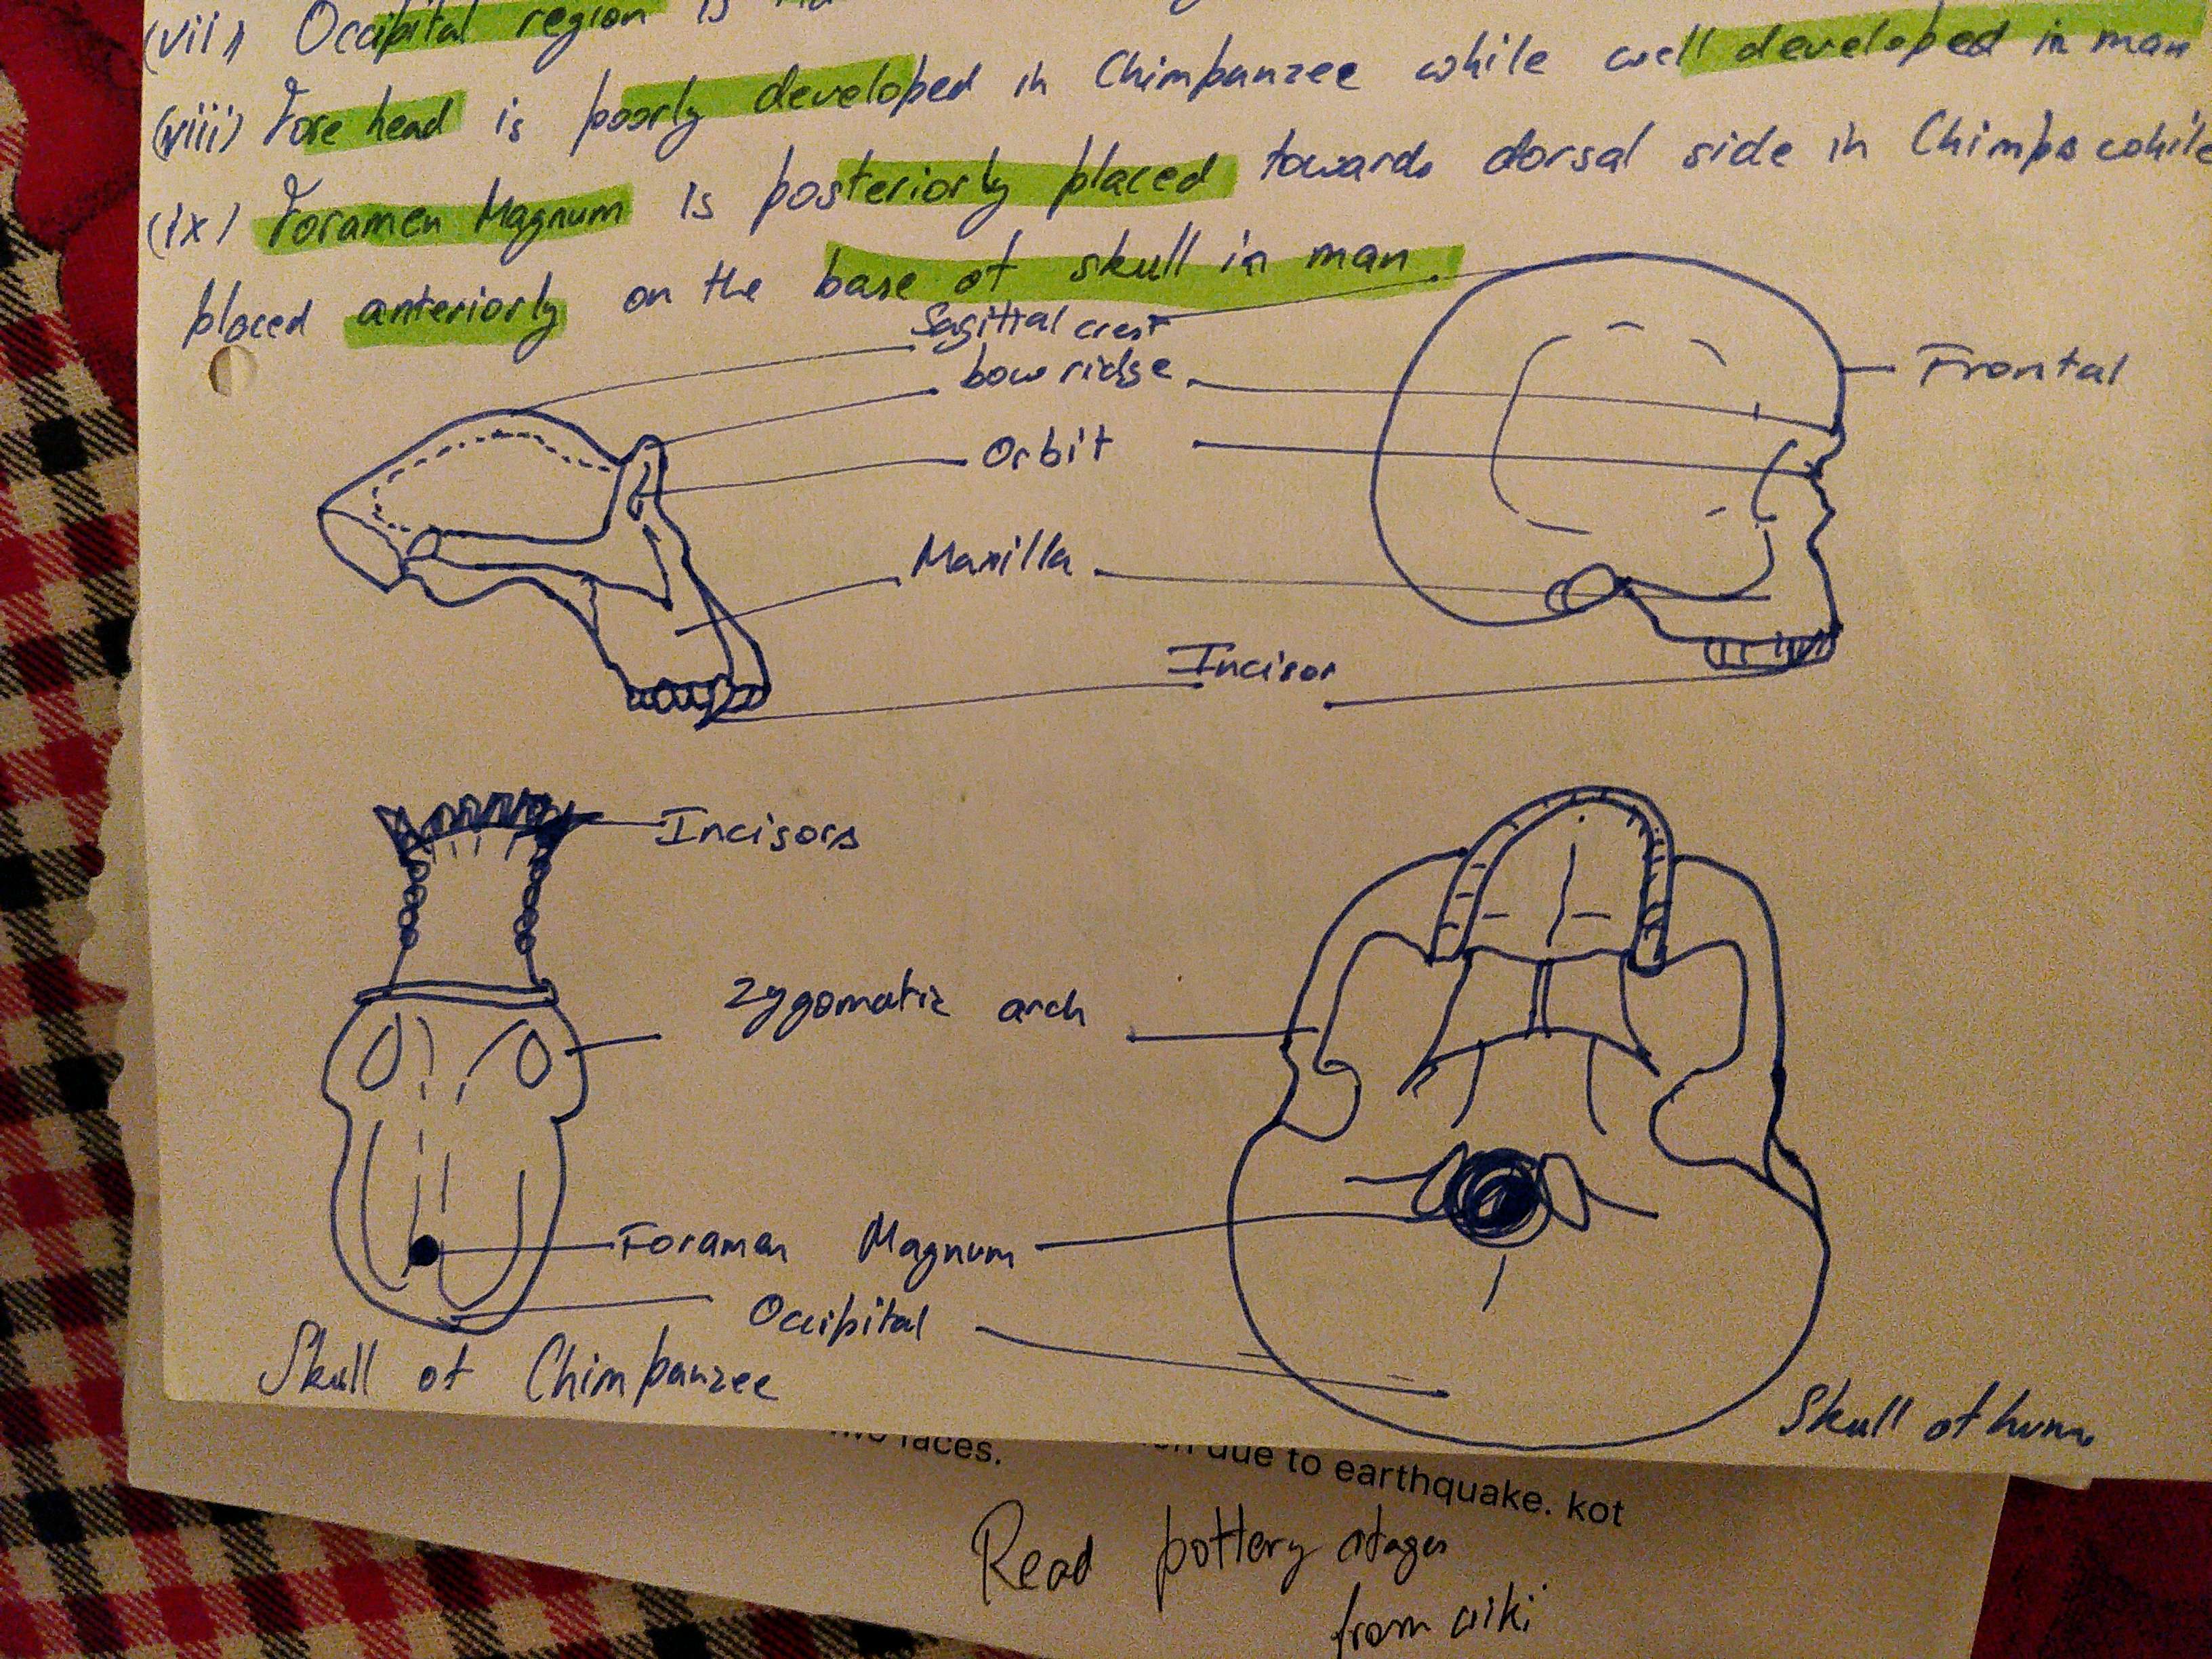 (vii) Occipital region is
(viii) Fore head is poorly developed in Chimpanzee while well developed in man
(ix) Foramen Magnum is posteriorly placed towards dorsal side in Chimps while
placed anteriorly on the base of skull in man.
Sagittal crest
bow ridge
Frontal
Orbit
Maxilla
Incisor
Incisors
Zygomatic arch
Foramen Magnum
Occipital
Skull of Chimpanzee
Skull of
faces.
due to earthquake. kot
Read pottery stages
from wiki